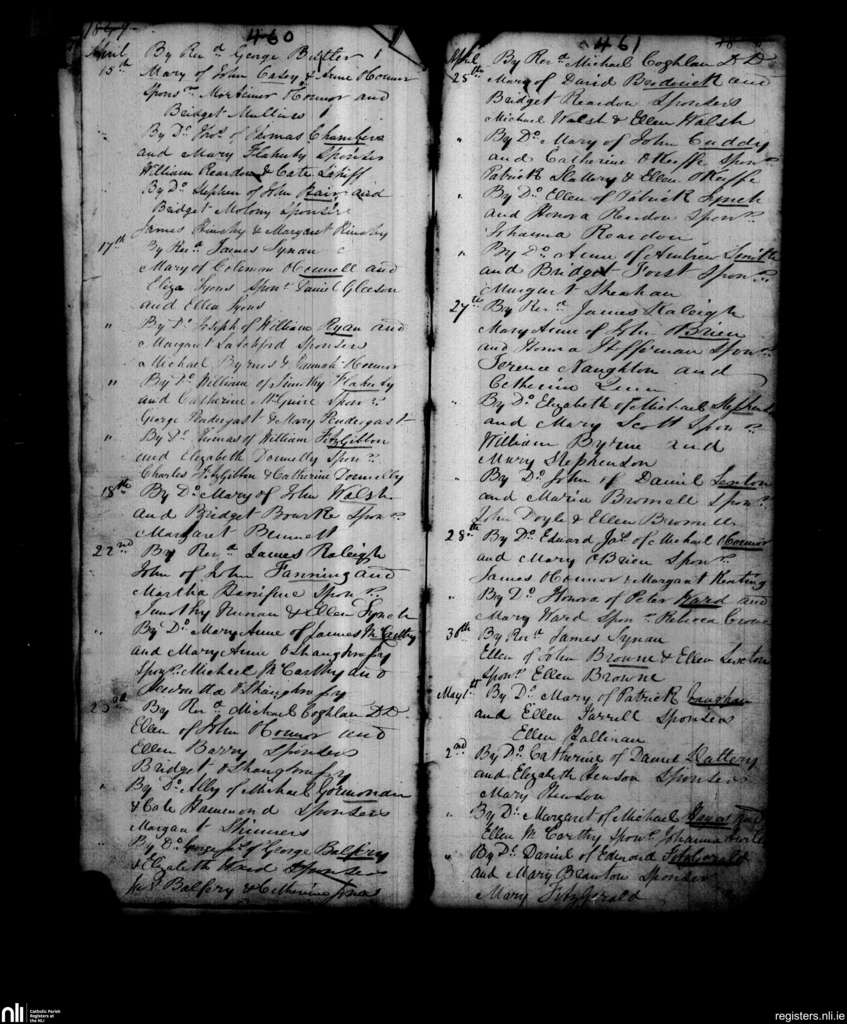 1849
460
April By Revd. George Butler
15th Mary of John Casey & Anne OConnor
Sponrs. Mortimer OConnor and
Bridget Mullins
By Do. Thos. of Thomas Chambers
and Mary Flaherty Sponsors
William Reardon & Cate Lahiff
By Do. Stephen of John and
Bridget Molony Sponsors
James & Margaret
17th By Revd. James Synan
Mary of Coleman OConnell and
Eliza Lyons Sponrs. Daniel Gleeson
and Ellen Lyons
" By Do. Joseph of William Ryan and
Margaret Latchford Sponsors
Michael Byrnes & Hannah OConnor
" By Do. William of Timothy Flaherty
and Catherine McGuire Sponrs.
George Pendergast & Mary Pendergast
" By Do. Thomas of William FitzGibbon
and Elizabeth Donnelly Sponrs.
Charles FitzGibbon & Catherine Donnelly
18th By Do. Mary of John Walsh
and Bridget Bourke Sponrs.
Margaret Bennett
22nd By Revd. James Raleigh
John of John Fanning and
Martha Sponrs.
Timothy & Ellen Lynch
" By Do. Mary Anne of James McCarthy
and Mary Anne OShaughnessy
Sponrs. Michael McCarthy and
OShaughnessy
23rd By Revd. Michael Coghlan D.D.
Ellen of John OConnor and
Ellen Barry Sponsors
Bridget OShaughnessy
" By Do. Ally of Michael Gormondan
& Cate Hammond Sponsors
Margaret Skinners
By Do. of George Balfery
& Elizabeth Ward Sponsors
Balfery & Catherine Jones
461
April By Revd. Michael Coghlan D.D.
25th Mary of David Broderick and
Bridget Reardon Sponsors
Michael Walsh & Ellen Walsh
" By Do. Mary of John Cuddy
and Catherine OKeeffe Sponrs.
Patrick Slattery & Ellen OKeeffe
" By Do. Ellen of Patrick Lynch
and Honora Reardon Sponrs.
Johanna Reardon
" By Do. Anne of Andrew Smith
and Bridget Sponrs.
Margaret Sheahan
27th By Revd. James Raleigh
Mary Anne of John OBrien
and Honora Heffernan Sponrs.
Terence Naughton and
Catherine Quin
" By Do. Elizabeth of Michael Stephenson
and Mary Scott Sponrs.
William Byrne and
Mary Stephenson
" By Do. John of Daniel Sexton
and Maria Bromell Sponrs.
John Doyle & Ellen Bromell
28th By Do. Edward Jos. of Michael OConnor
and Mary OBrien Sponrs.
James OConnor & Margaret Keating
" By Do. Honora of Peter Ward and
Mary Ward Sponr. Rebecca Crowe
30th By Revd. James Synan
Ellen of John Browne & Ellen Sexton
Sponr. Ellen Browne
May 1st By Do. Mary of Patrick Vaughan
and Ellen Farrell Sponsors
Ellen Hallinan
2nd By Do. Catherine of Daniel Slattery
and Elizabeth Hewson Sponsors
Mary Hewson
" By Do. Margaret of Michael and
Ellen McCarthy Sponr. Johanna
" By Do. Daniel of Edward FitzGerald
and Mary Sponsors
Mary FitzGerald
nli
Catholic Parish
Registers at
the NLI
registers.nli.ie